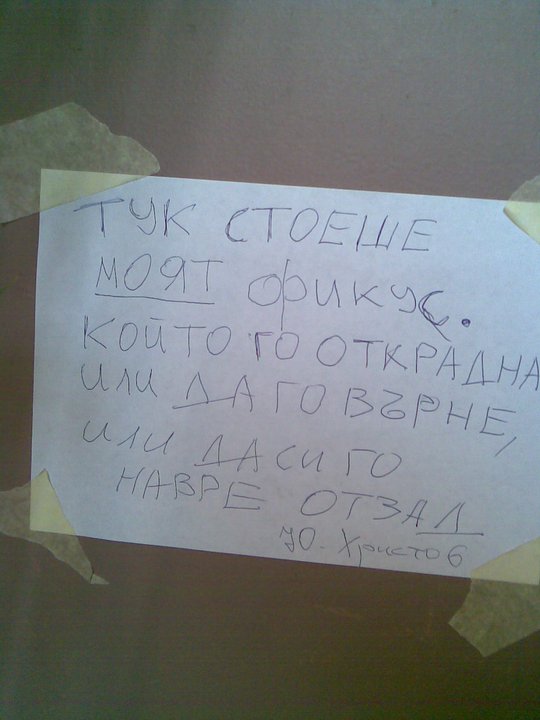 ТУК СТОЕШЕ
МОЯТ ФИКУС.
КОЙТО ГО ОТКРАДНА
ИЛИ ДА ГО ВЪРНЕ,
ИЛИ ДА СИ ГО
НАВРЕ ОТЗАД
Ю. Христов